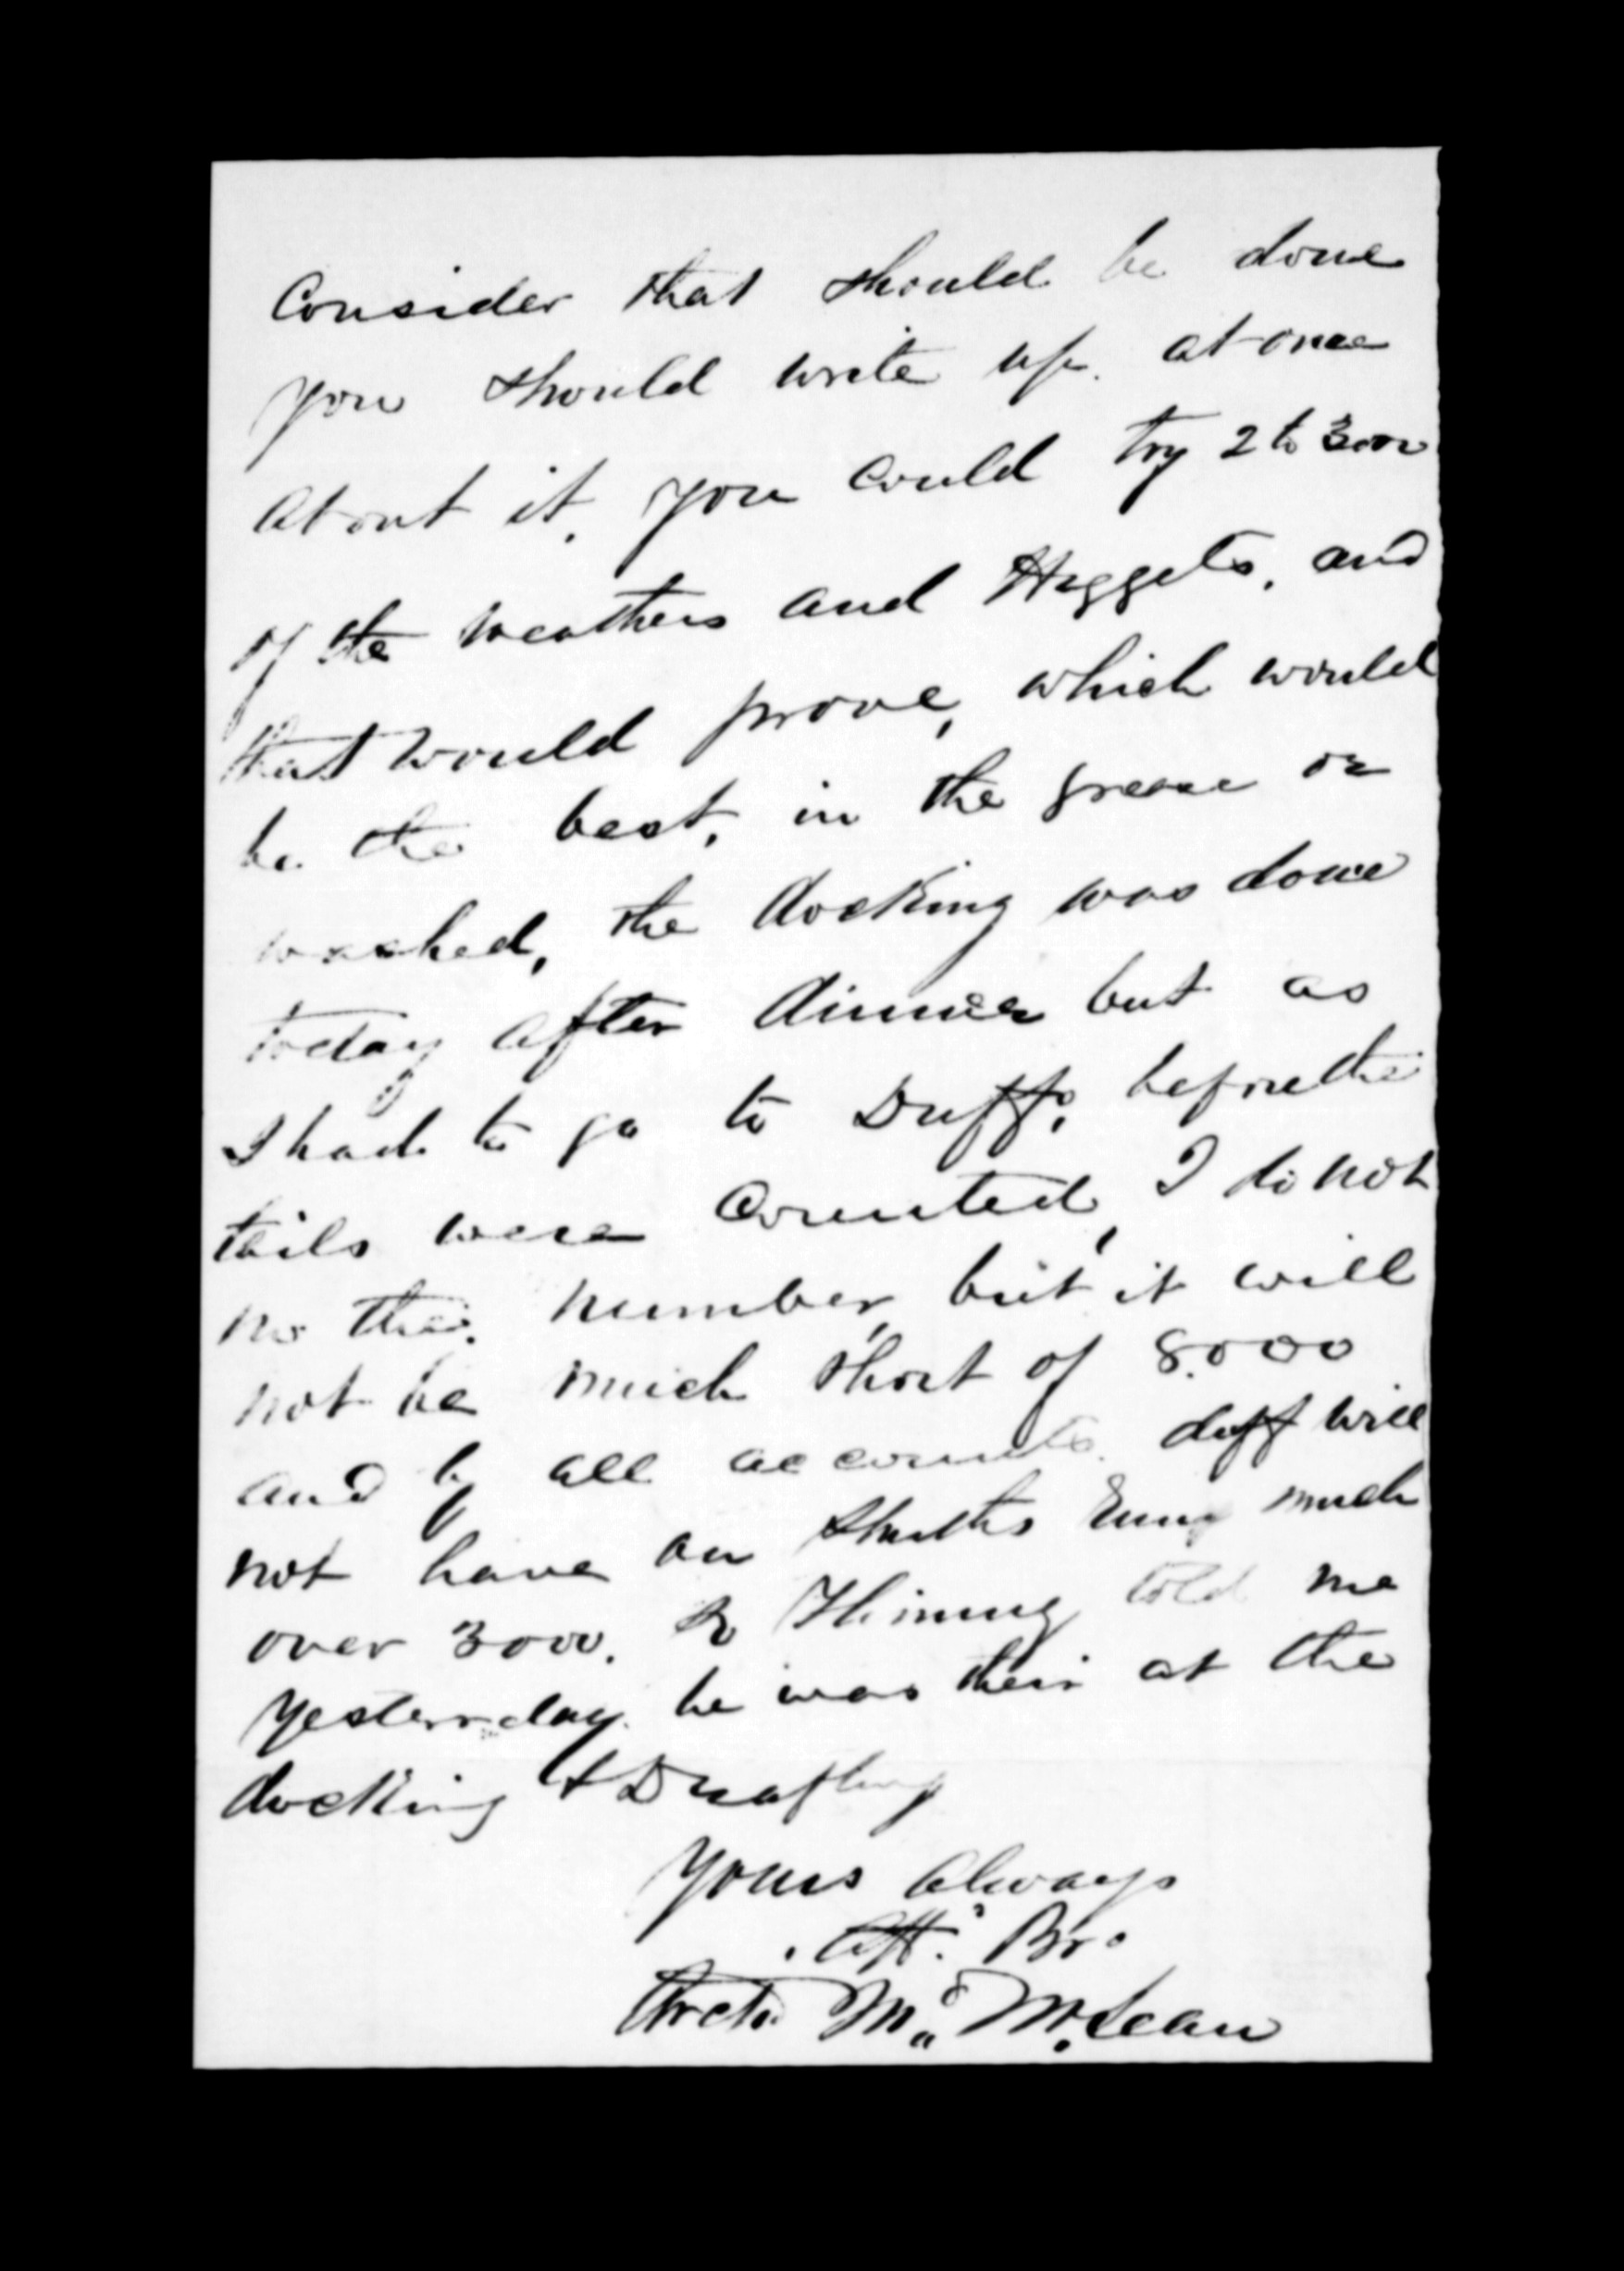 Consider that should be done
you should write up. at once
about it, you could try 2 to 3000
of the weathers and Heggets, and
that would prove, which would
be the best, in the grease or
washed, the docking was done
today after dinner but as
I had to go to Duffs, before the
tails were counted, I do not
no the number, but it will
not be much short of 8.000
and by all accounts. duff will
not have on Smiths Run much
over 3000. So told me
yesterday. he was their at the
docking & Drafting
Yours always
Afft. Bro
Archd. Mc. McLean